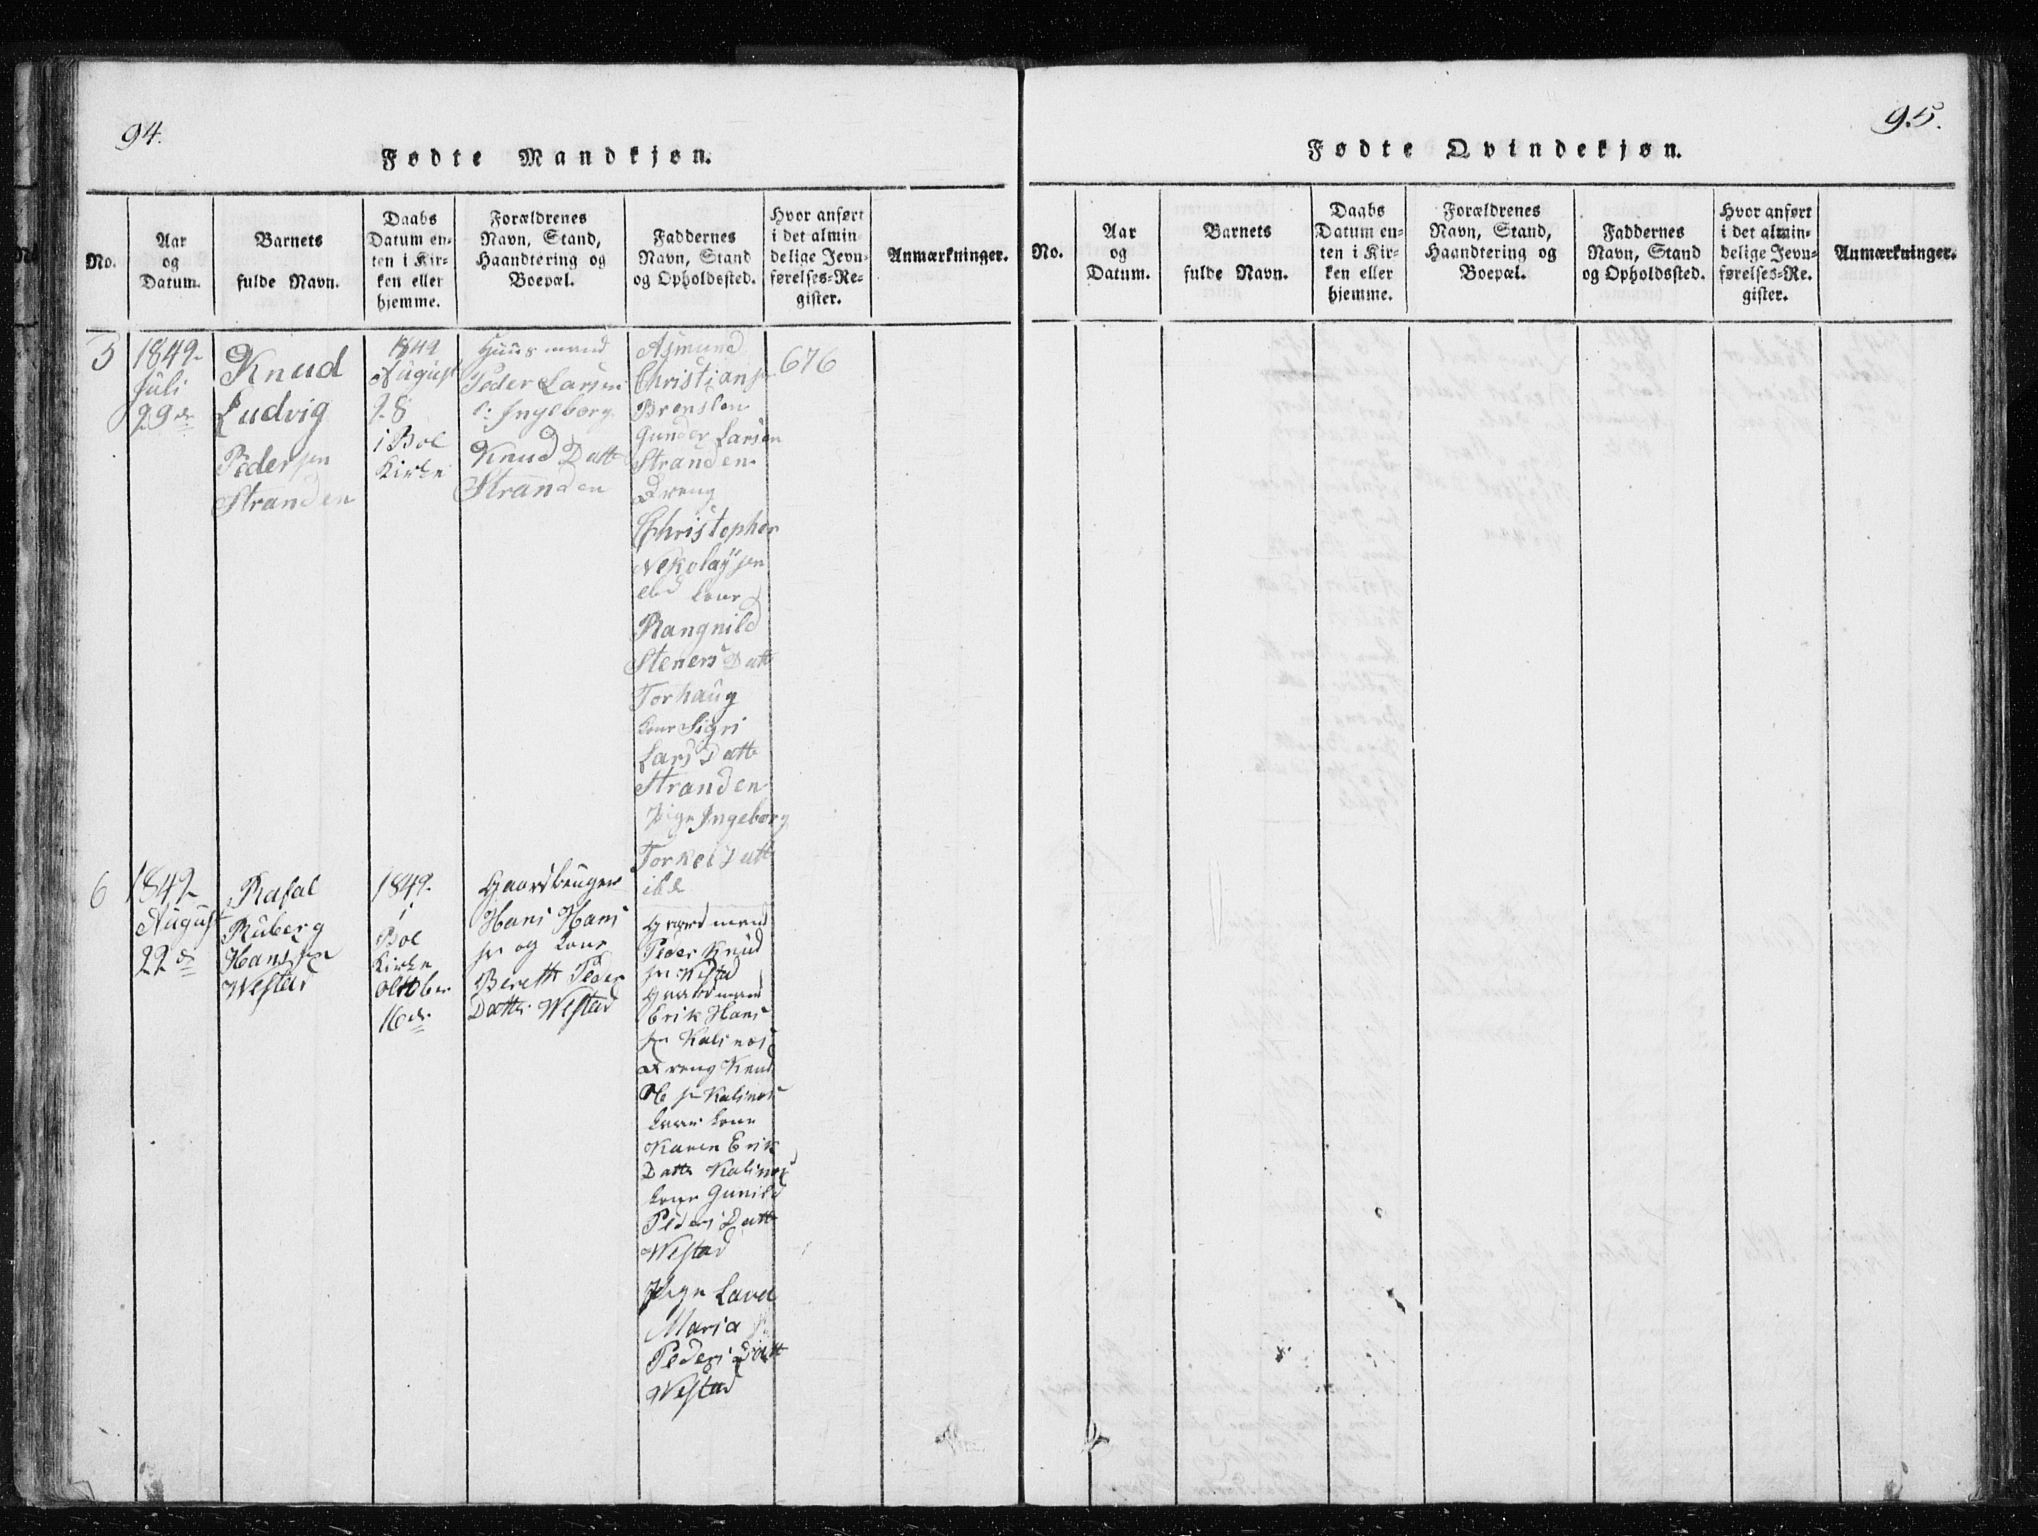 94.
Fødte Mandkjøn.
No.
Aar
og
Datum.
Barnets
fulde Navn.
Daabs
Datum en-
ten i Kir-
ken eller
hjemme.
Forældrenes
Navn, Stand,
Haandtering og
Boepæl.
Faddernes
Navn, Stand
og Opholdssted.
Hvor anført
i det almin-
delige Jevn-
førelses-Re-
gister.
Anmærkninger.
5
1849
Juli
29de
Knud
Ludvig
Pedersen
Stranden
1849
August
28
i Bol
Kirke
Huusmand
Peder Larsen
Ingeborg
Knud Datt
Stranden
Asmund
Christiansen
Gunder Larsen
Stranden
Dreng
Christopher
Nekolaysen
Kone
Rangnild
Steners Datt
Torhaug
Kone Sigri
Lars Datt
Stranden
Pige Ingeborg
Torkels Datt
676
6
1849
August
22de
Rafal
Ruberg
Hansen
Westad
1849
i
Bol
Kirke
oktober
16de
Gaardbruger
Hans Hans
sen og Kone
Bereth Peder
Datter Westad
Gaardmand
Peder Knud
sen Westad
Gaardmand
Erik Hans
sen Kalsnes
Dreng Knud
Ole sen Kalsnes
Kone
Karen Erik
Datter Kalsnes
Kone Gunild
Peders Datt
Westad
Pige Lava
Maria
Peders Datt
Westad
95.
Fødte Qvindekjøn.
No.
Aar
og
Datum.
Barnets
fulde Navn.
Daabs
Datum en-
ten i Kir-
ken eller
hjemme.
Forældrenes
Navn, Stand,
Haandtering og
Boepæl.
Faddernes
Navn, Stand
og Opholdssted.
Hvor anført
i det almin-
delige Jevn-
førelses-Re-
gister.
Anmærkninger.